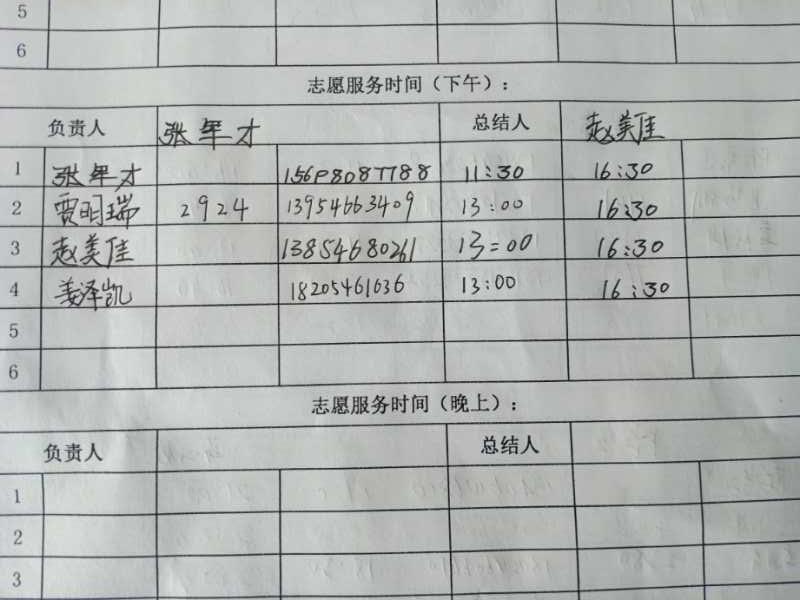 5
6
志愿服务时间（下午）：
负责人 张年才 总结人 赵美佳
1 张年才 156P8087788 11:30 16:30
2 贾明瑞 2924 13954663409 13:00 16:30
3 赵美佳 13854680261 13:00 16:30
4 姜泽凯 18205461036 13:00 16:30
5
6
志愿服务时间（晚上）：
负责人 总结人
1
2
3